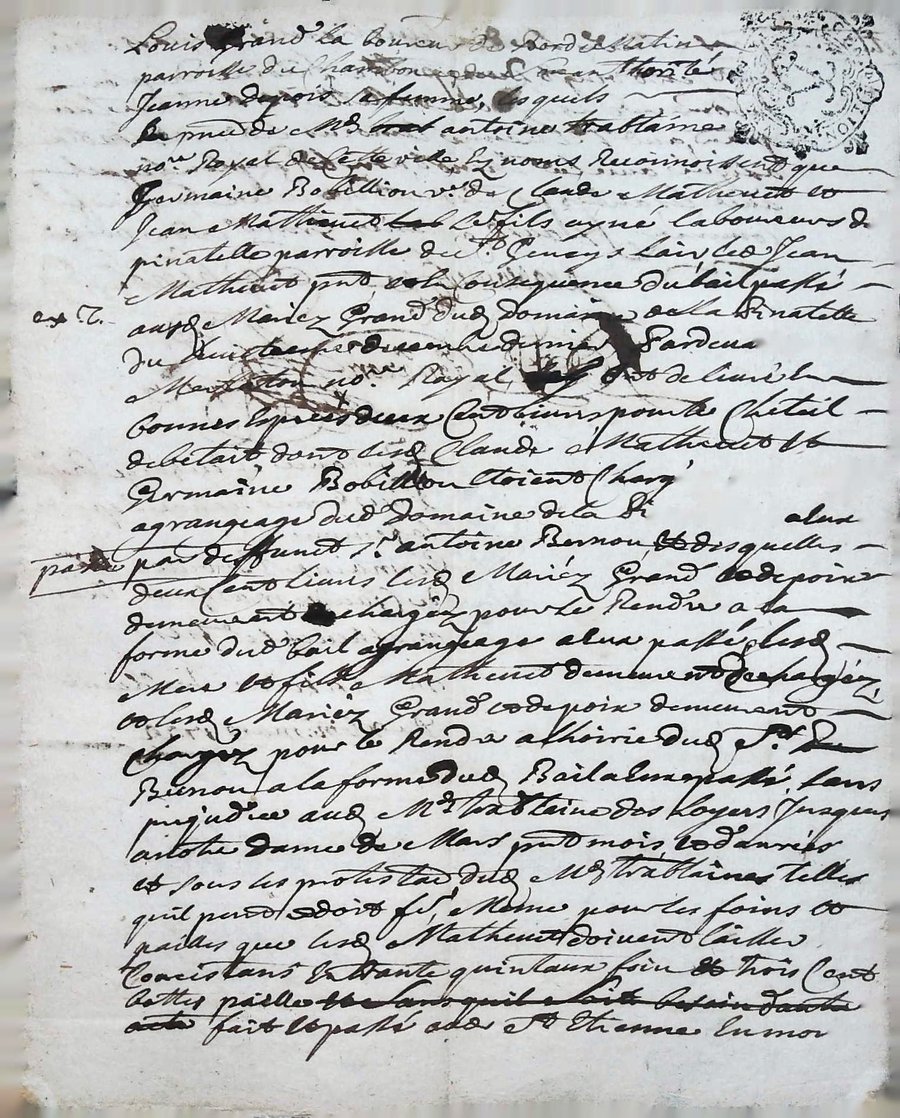 Louis Grand la boureur de
parroisse du Chambon
Jeanne depoix sa femme, lesquels
antoine trablaine
no.re Royal de Cette ville Ez noms Reconnoissent que
Germaine Bobillion v.e de Claude Matheuet et
Jean Matheuet Le fils ayné laboureurs de
pinatelle parroisse de S.t Geneys Ler led Jean
Matheuet pnt et En Consequence du bail passé
auxd Mariez Grand dud Domaine de la Pinatelle
du huit decembre dernier pardeuant
no.re Royal ont deliuré En
bonnes Espres deux Cent liures pour le Cheteil
de betail dont lesd Claude Matheuet et
Germaine Bobillion Etoient Chargé
agrangeage dud Domaine de la Pi
aeux
passé par deffunct S.r antoine Bernou, desquelles
deux Cent liures lesd Mariez Grand et depoix
demeurent chargéz pour le Rendre a la
forme dud bail agrangeage aeux passé, lesd
Mere et fils Matheuet demeurent dechargéz,
et lesd Mariéz Grand et depoix demeurent
Chargéz pour le Rendre a lhoirie dud S.r
Bernou a la forme dud Bail aeux passé, sans
prejudice aud M.e trablaine des Loyers Jusques
a notre dame de Mars pnt mois et dannées
et sous les protestaons dud M.e trablaine telles
quil peut et doit fe, Meme pour les foins et
pailles que lesd Matheuet doiuent laisser
Concistans En trante quintaux foin et trois Cent
bottes paille et sans quil soit besoin dautre
acte fait et passé aud S.t Etienne